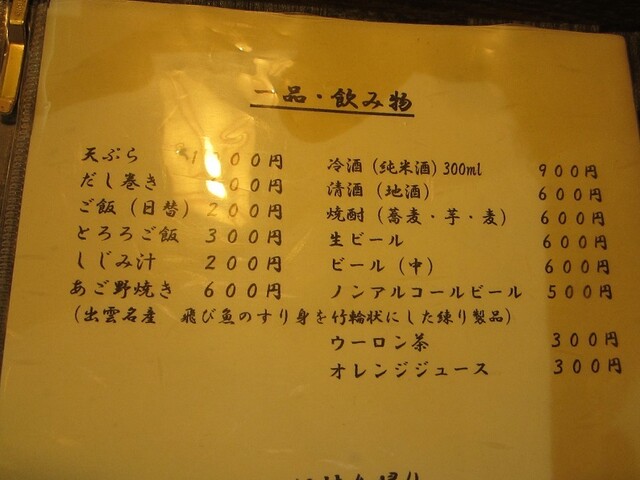 一品・飲み物
天ぷら 00円
だし巻き 00円
ご飯（日替）200円
とろろご飯 300円
しじみ汁 200円
あご野焼き 600円
（出雲名産 飛び魚のすり身を竹輪状にした練り製品）
冷酒（純米酒）300ml 900円
清酒（地酒） 600円
焼酎（蕎麦・芋・麦） 600円
生ビール 600円
ビール（中） 600円
ノンアルコールビール 500円
ウーロン茶 300円
オレンジジュース 300円